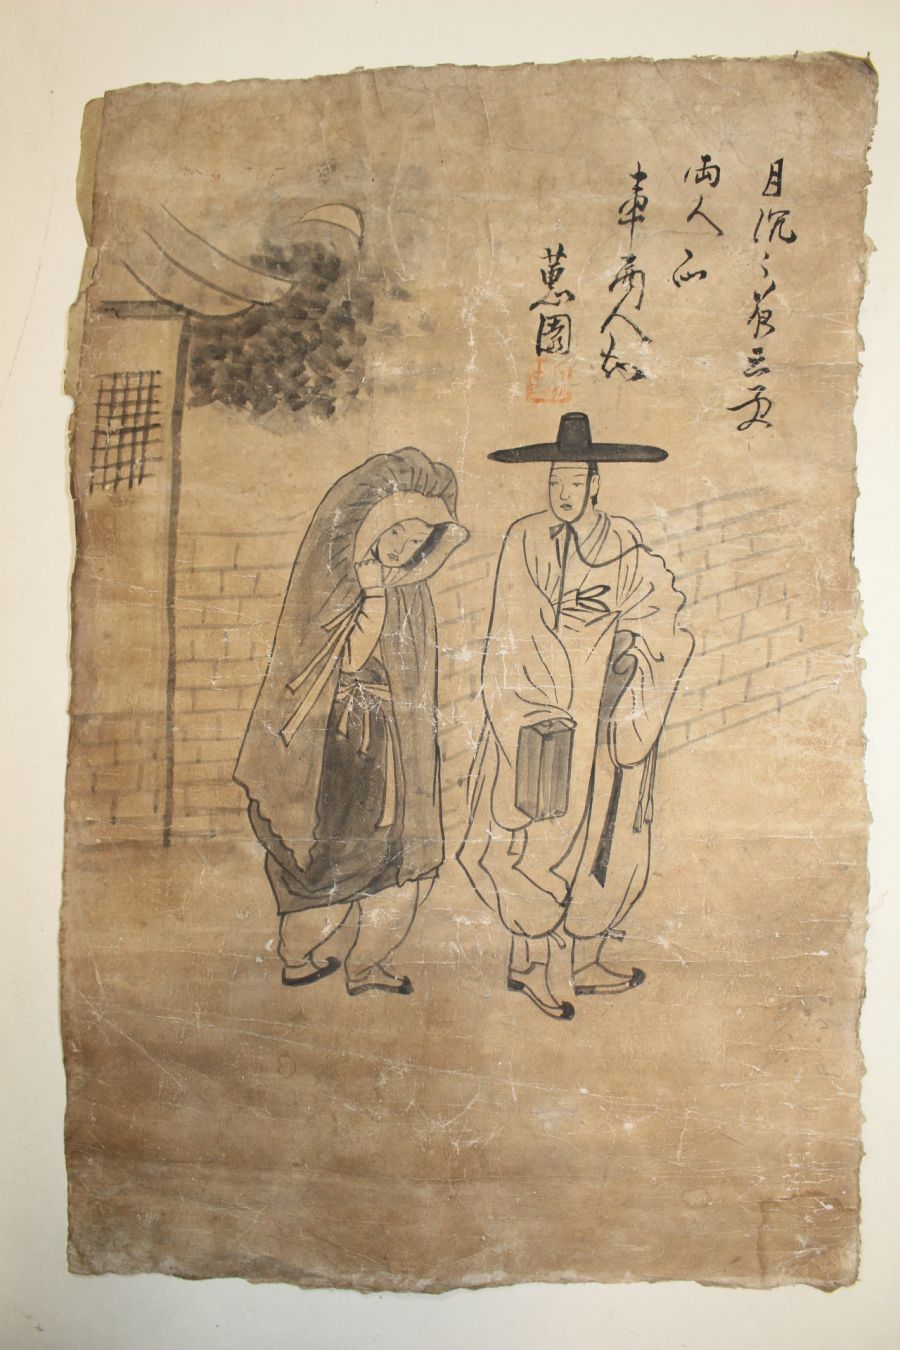 月沉々夜三更
両人心
事両人知
蕙園